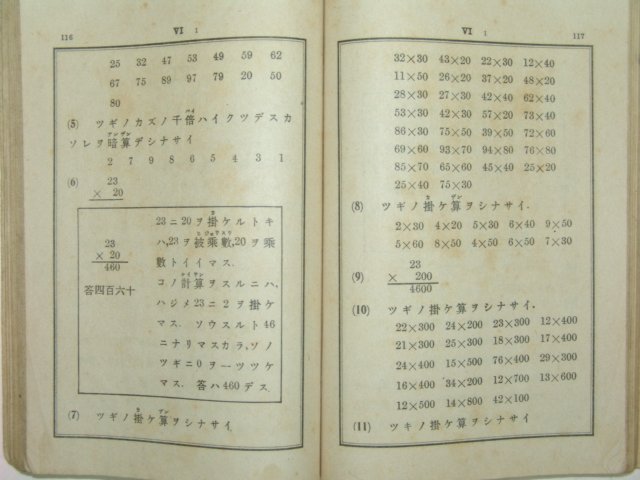 116
VI 1
25 32 47 53 49 59 62
67 75 89 97 79 20 50
80
(5) ツギノカズノ千倍ハイクツデスカ
ソレヲ暗算デシナサイ
2 7 9 8 6 5 4 3 1
(6) 23
× 20
23
× 20
460
答四百六十
23ニ20ヲ掛ケルトキ
ハ,23ヲ被乘數,20ヲ乘
數トイイマス.
コノ計算ヲスルニハ,
ハジメ23ニ2ヲ掛ケ
マス. ソウスルト46
ニナリマスカラ,ソノ
ツギニ0ヲ一ツツケ
マス. 答ハ460デス.
(7) ツギノ掛ケ算ヲシナサイ
VI 1
117
32×30 43×20 22×30 12×40
11×50 26×20 37×20 48×20
28×30 27×30 42×40 62×40
53×30 42×30 57×30 63×70
86×30 75×50 39×50 72×60
69×60 93×70 94×80 76×80
85×70 65×60 45×40 25×20
25×40 75×30
(8) ツギノ掛ケ算ヲシナサイ.
2×30 4×20 5×30 6×40 9×50
5×60 8×50 4×50 6×50 7×30
(9) 23
× 200
4600
(10) ツギノ掛ケ算ヲシナサイ.
22×300 24×200 23×300 12×400
21×300 25×300 18×300 17×400
24×400 15×500 76×400 29×300
16×400 34×200 12×700 13×600
12×500 14×800 42×100
(11) ツキノ掛ケ算ヲシナサイ